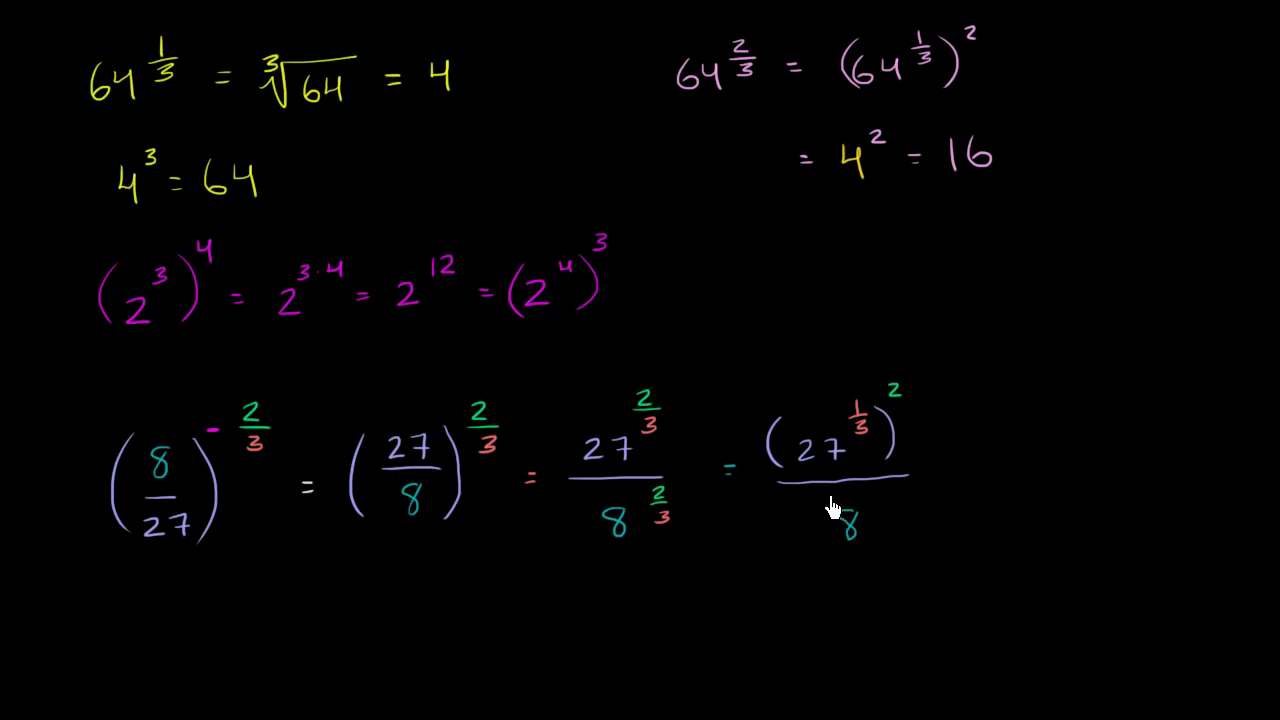 64^(1/3) = ∛64 = 4
64^(2/3) = (64^(1/3))^2
= 4^2 = 16
4^3 = 64
(2^3)^4 = 2^(3·4) = 2^12 = (2^4)^3
(8/27)^(-2/3) = (27/8)^(2/3) = 27^(2/3)/8^(2/3) = (27^(1/3))^2/8